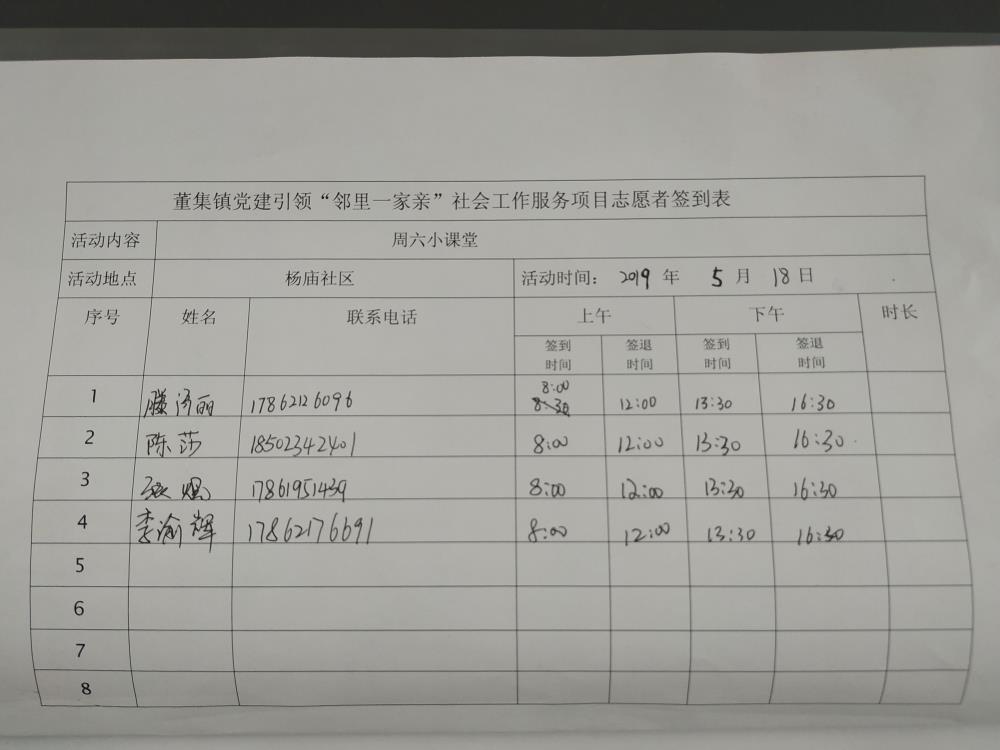 董集镇党建引领“邻里一家亲”社会工作服务项目志愿者签到表
活动内容 周六小课堂
活动地点 杨庙社区 活动时间： 2019 年 5 月 18 日
序号 姓名 联系电话 上午 下午 时长
签到时间 签退时间 签到时间 签退时间
8:00
1 滕 丽 17862126096 8:30 12:00 13:30 16:30
2 陈莎 18502342401 8:00 12:00 13:30 16:30
3 17861951439 8:00 12:00 13:30 16:30
4 李渝辉 17862176691 8:00 12:00 13:30 16:30
5
6
7
8